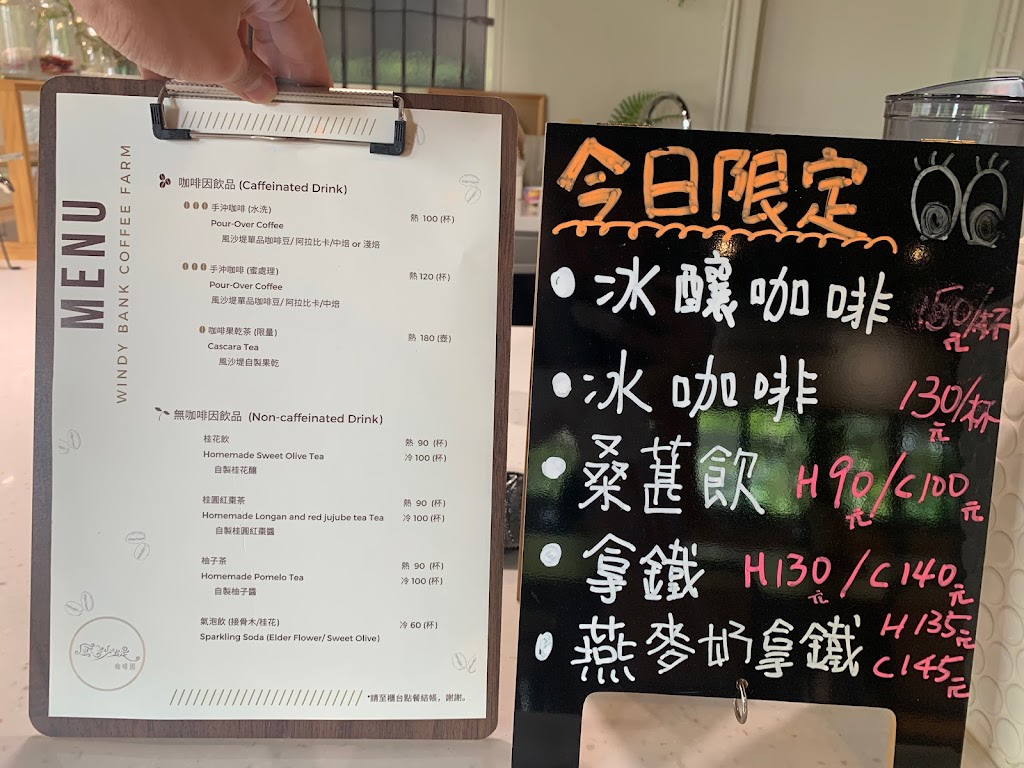 MENU
WINDY BANK COFFEE FARM
咖啡因飲品 (Caffeinated Drink)
手沖咖啡 (水洗) 熱 100 (杯)
Pour-Over Coffee
風沙堤單品咖啡豆/ 阿拉比卡/中焙 or 淺焙
手沖咖啡 (蜜處理) 熱120 (杯)
Pour-Over Coffee
風沙堤單品咖啡豆/ 阿拉比卡/中焙
咖啡果乾茶 (限量) 熱 180 (壺)
Cascara Tea
風沙堤自製果乾
無咖啡因飲品 (Non-caffeinated Drink)
桂花飲 熱 90 (杯)
Homemade Sweet Olive Tea 冷 100 (杯)
自製桂花釀
桂圓紅棗茶 熱 90 (杯)
Homemade Longan and red jujube tea Tea 冷 100 (杯)
自製桂圓紅棗醬
柚子茶 熱 90 (杯)
Homemade Pomelo Tea 冷 100 (杯)
自製柚子醬
氣泡飲 (接骨木/桂花) 冷 60 (杯)
Sparkling Soda (Elder Flower/ Sweet Olive)
風沙堤
咖啡園
*請至櫃台點餐結帳，謝謝。
今日限定
冰釀咖啡 150元/杯
冰咖啡 130元/杯
桑葚飲 H90元/C100元
拿鐵 H130元/C140元
燕麥奶拿鐵 H135元
C145元